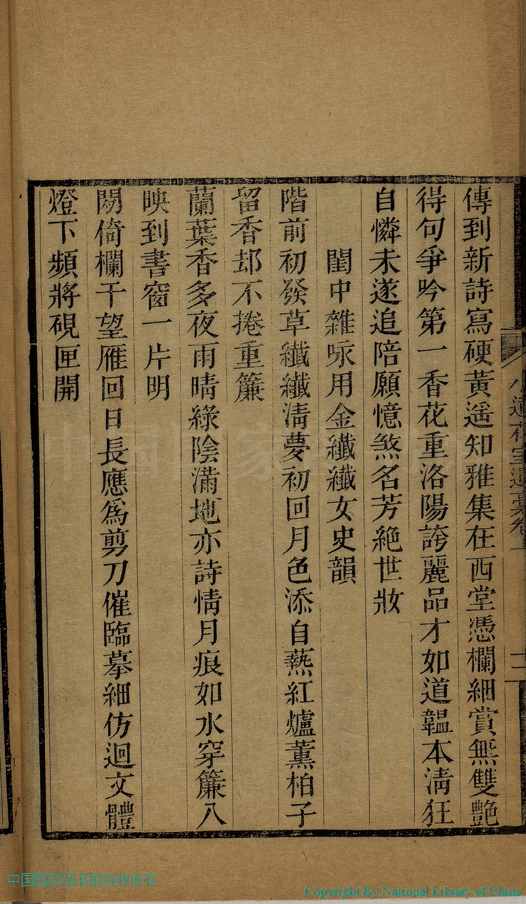 傳到新詩寫硬黃遥知雅集在西堂憑欄細賞無雙艷
得句爭吟第一香花重洛陽誇麗品才如道韞本淸狂
自憐未遂追陪願憶煞名芳絶世妝
閨中雜咏用金纎纎女史韻
階前初發草纎纎淸夢初回月色添自爇紅爐薰柏子
留香却不捲重簾
蘭葉香多夜雨晴綠陰滿地亦詩情月痕如水穿簾入
映到書窗一片明
閑倚欄干望雁回日長應爲剪刀催臨摹細仿迴文體
燈下頻將硯匣開
小蓮花室遺稾卷
Copyright By National Library of China